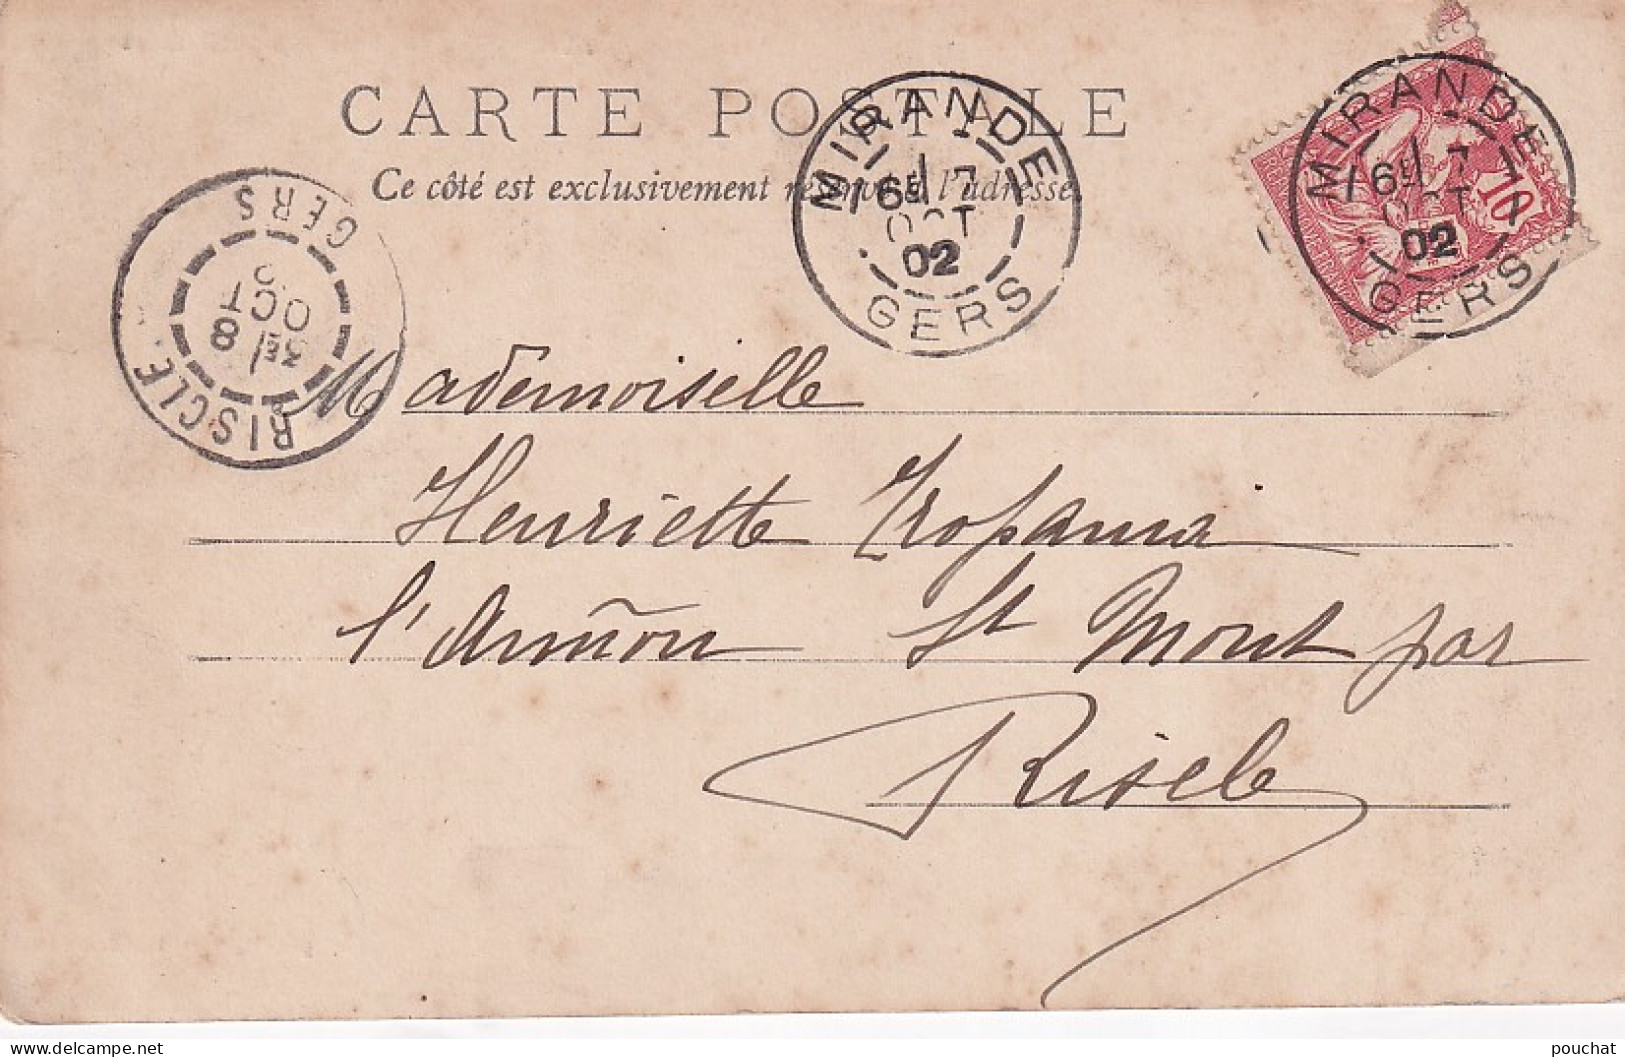 CARTE POSTALE
Ce côté est exclusivement réservé à l'adresse.
MIRANDE
6E 7
OCT
02
GERS
MIRANDE
6E 7
OCT
02
GERS
10
RISCLE
3E
8
OCT
GERS
Mademoiselle
Henriette
l'Armñon St Mont par
Riscle
pouchat